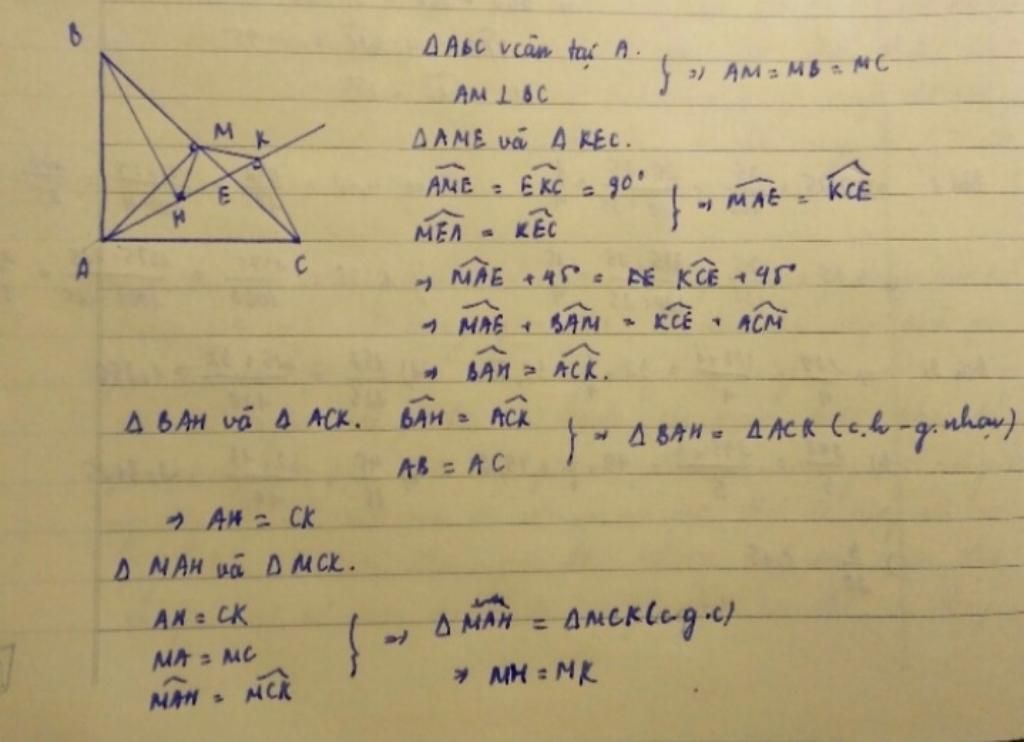 B
M
K
H
E
A
C
ΔABC vcân tại A.
AM ⊥ BC
} => AM = MB = MC
ΔAME và ΔKEC.
\widehat{AME} = \widehat{EKC} = 90°
\widehat{MEA} = \widehat{KEC}
} => \widehat{MAE} = \widehat{KCE}
=> \widehat{MAE} + 45° = \widehat{KCE} + 45°
=> \widehat{MAE} + \widehat{BAM} = \widehat{KCE} + \widehat{ACM}
=> \widehat{BAH} = \widehat{ACK}.
Δ BAH và Δ ACK. \widehat{BAH} = \widehat{ACK}
AB = AC
} => Δ BAH = ΔACK (c.h - g.nhọn)
=> AH = CK
Δ MAH và Δ MCK.
AH = CK
MA = MC
\widehat{MAH} = \widehat{MCK}
} => Δ MAH = ΔMCK (c.g.c)
=> MH = MK